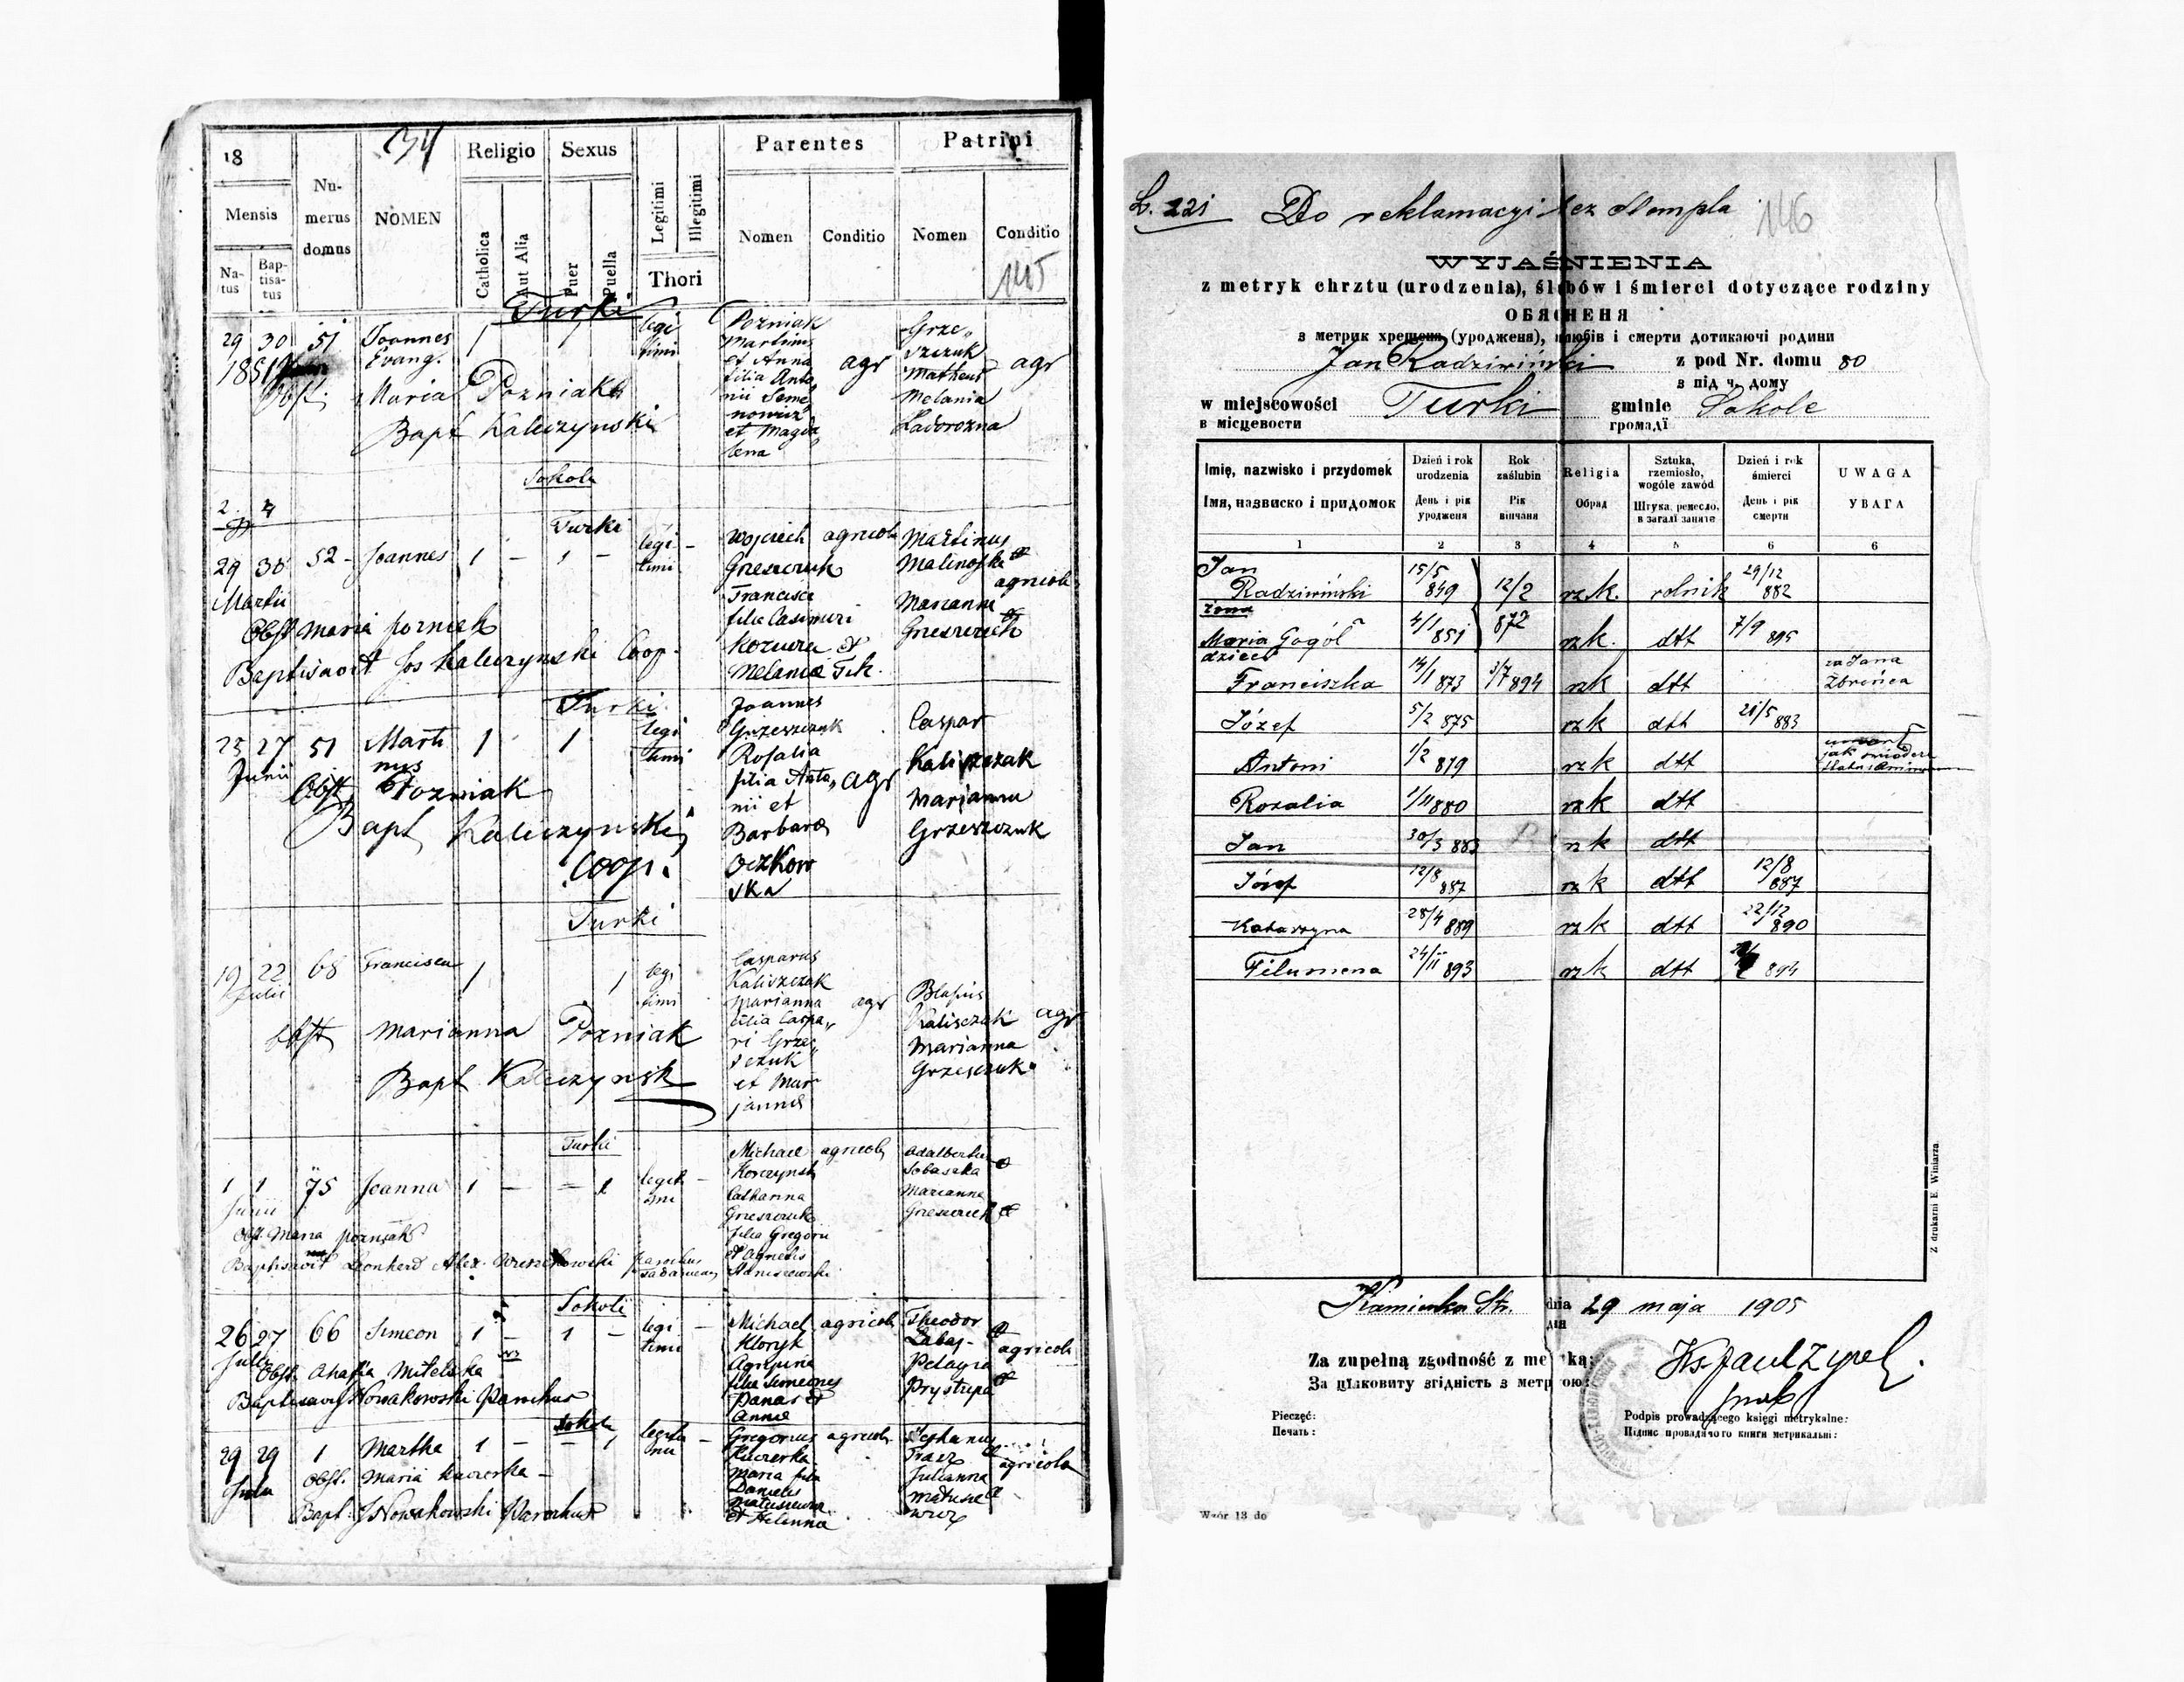 18
34
Religio
Sexus
Legitimi
Illegitimi
Parentes
Patrini
Mensis
Numerus domus
NOMEN
Na-
tus
Bap-
tisa-
tus
Catholica
Aut Alia
Puer
Puella
Thori
Nomen
Conditio
Nomen
Conditio
145
Turki
29 30 51 Joannes 1 1 legi Pozniak Grze,
1851 Evang. timi Martinus szczuk
et Anna agr Matheus agr
filia Anto
Obst. Maria Pozniak nii Seme Melania
nowicz Zadorozna
Bapt Kaliczynski et Magda
lena
Sokole
2 4
Turki
29 30 52 - Joannes 1 - 1 - legi - Wojciech agricola Martinus
timi Greszczuk
Martii Francisca agricola
filia Casimiri Marianna
Obst Maria pozniak Greszczuk
Baptisavit Jos Kaliczynski Coop. Melaniæ
Turki
Joannes
25 27 51 Marti 1 1 legi Grzeszczuk Caspar
nus timi Rosalia
Junii filia Anto, agr Kaliszczak
Obst Pozniak nii et Marjanna
Bapt Kaliczynski Barbara Grzeszczuk
Coop. Oczkow
ska
Turki
19 22 68 Francisca 1 1 legi Casparus
Julii timi Kaliszczak Blasius
Marianna agr Kalisczak agr
Obst Marianna Pozniak filia Caspa,
ri Grze, Marianna
sczuk Grzesczuk
Bapt Kaliczynsk et Mar
janna
Turki
1 1 75 Joanna 1 - - 1 legit - Michael agricola Adalbertus
imi Korczynski Sobaszka
Junii Catharina Marianna
Obst. Maria pozniak Greszczuk
filia Gregorii
Baptisavit Leonherd Alex. et Agnetis
Sokoli
26 27 66 Simeon 1 - 1 - legi - Michael agricola Theodor
timi Kloryk Labaj - agricola
Julii Agripina Pelagia
Obst. filia Simeonis Prystupa
Baptisavit JNowakowski Parochus Panas et
Annæ
Sokole
29 29 1 Martha 1 - - 1 legiti - Gregorius agricola Stephanus
mi Kuczerka agricola
Obst. Maria Kuczerka - Maria filia Julianna
Danielis
Bapt. JNowakowski Parochus et Helenna
L. 221 Do reklamacyi bez stempla 146
WYJAŚNIENIA
z metryk chrztu (urodzenia), ślubów i śmierci dotyczące rodziny
ОБЯСНЕНЯ
з метрик хрещеня (уродженя), шлюбів і смерти дотикаючі родини
Jan Radziwiński z pod Nr. domu 80
з під ч. дому
w miejscowości Turki gminie Sokole
в місцевости громаді
Imię, nazwisko i przydomek
Імя, назвиско і придомок
Dzień i rok urodzenia
День і рік уродженя
Rok zaślubin
Рік вінчаня
Religia
Обряд
Sztuka, rzemiosło, wogóle zawód
Штука, ремесло, в загалі занятє
Dzień i rok śmierci
День і рік смерти
UWAGA
УВАГА
1 2 3 4 5 6 6
Jan
Radziwiński 15/5 849 12/2 872 rz.k. rolnik 29/12 882
żona
Maria Gogól 4/1 851 rzk. dtt 7/9 895
dzieci
Franciszka 14/1 873 3/7 894 rzk dtt za Jana Zbreńca
Józef 5/2 875 rzk dtt 21/5 883
Antoni 1/2 879 rzk dtt
Rozalia 1/11 880 rzk dtt
Jan 30/3 883 rzk dtt
Józef 12/8 887 rzk dtt 12/8 887
Katarzyna 28/4 889 rzk dtt 22/12 890
Filumena 24/11 893 rzk dtt 894
Z drukarni E. Winiarza
Kamionka Str. dnia 29 maja 1905
дня
Za zupełną zgodność z metryką:
За цілковиту згідність з метрикою:
Pieczęć:
Печать:
Podpis prowadzącego księgi metrykalne:
Підпис провадячого книги метрикальні:
Wzór 13 do